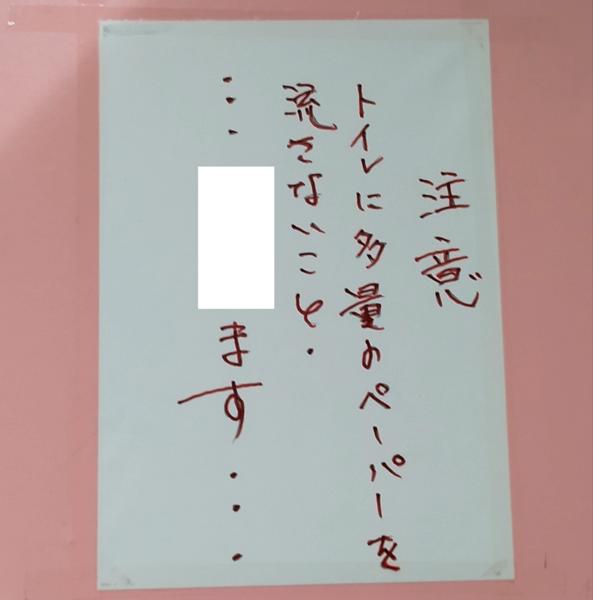 注意
トイレに多量のペーパーを
流さないこと.
...ます...